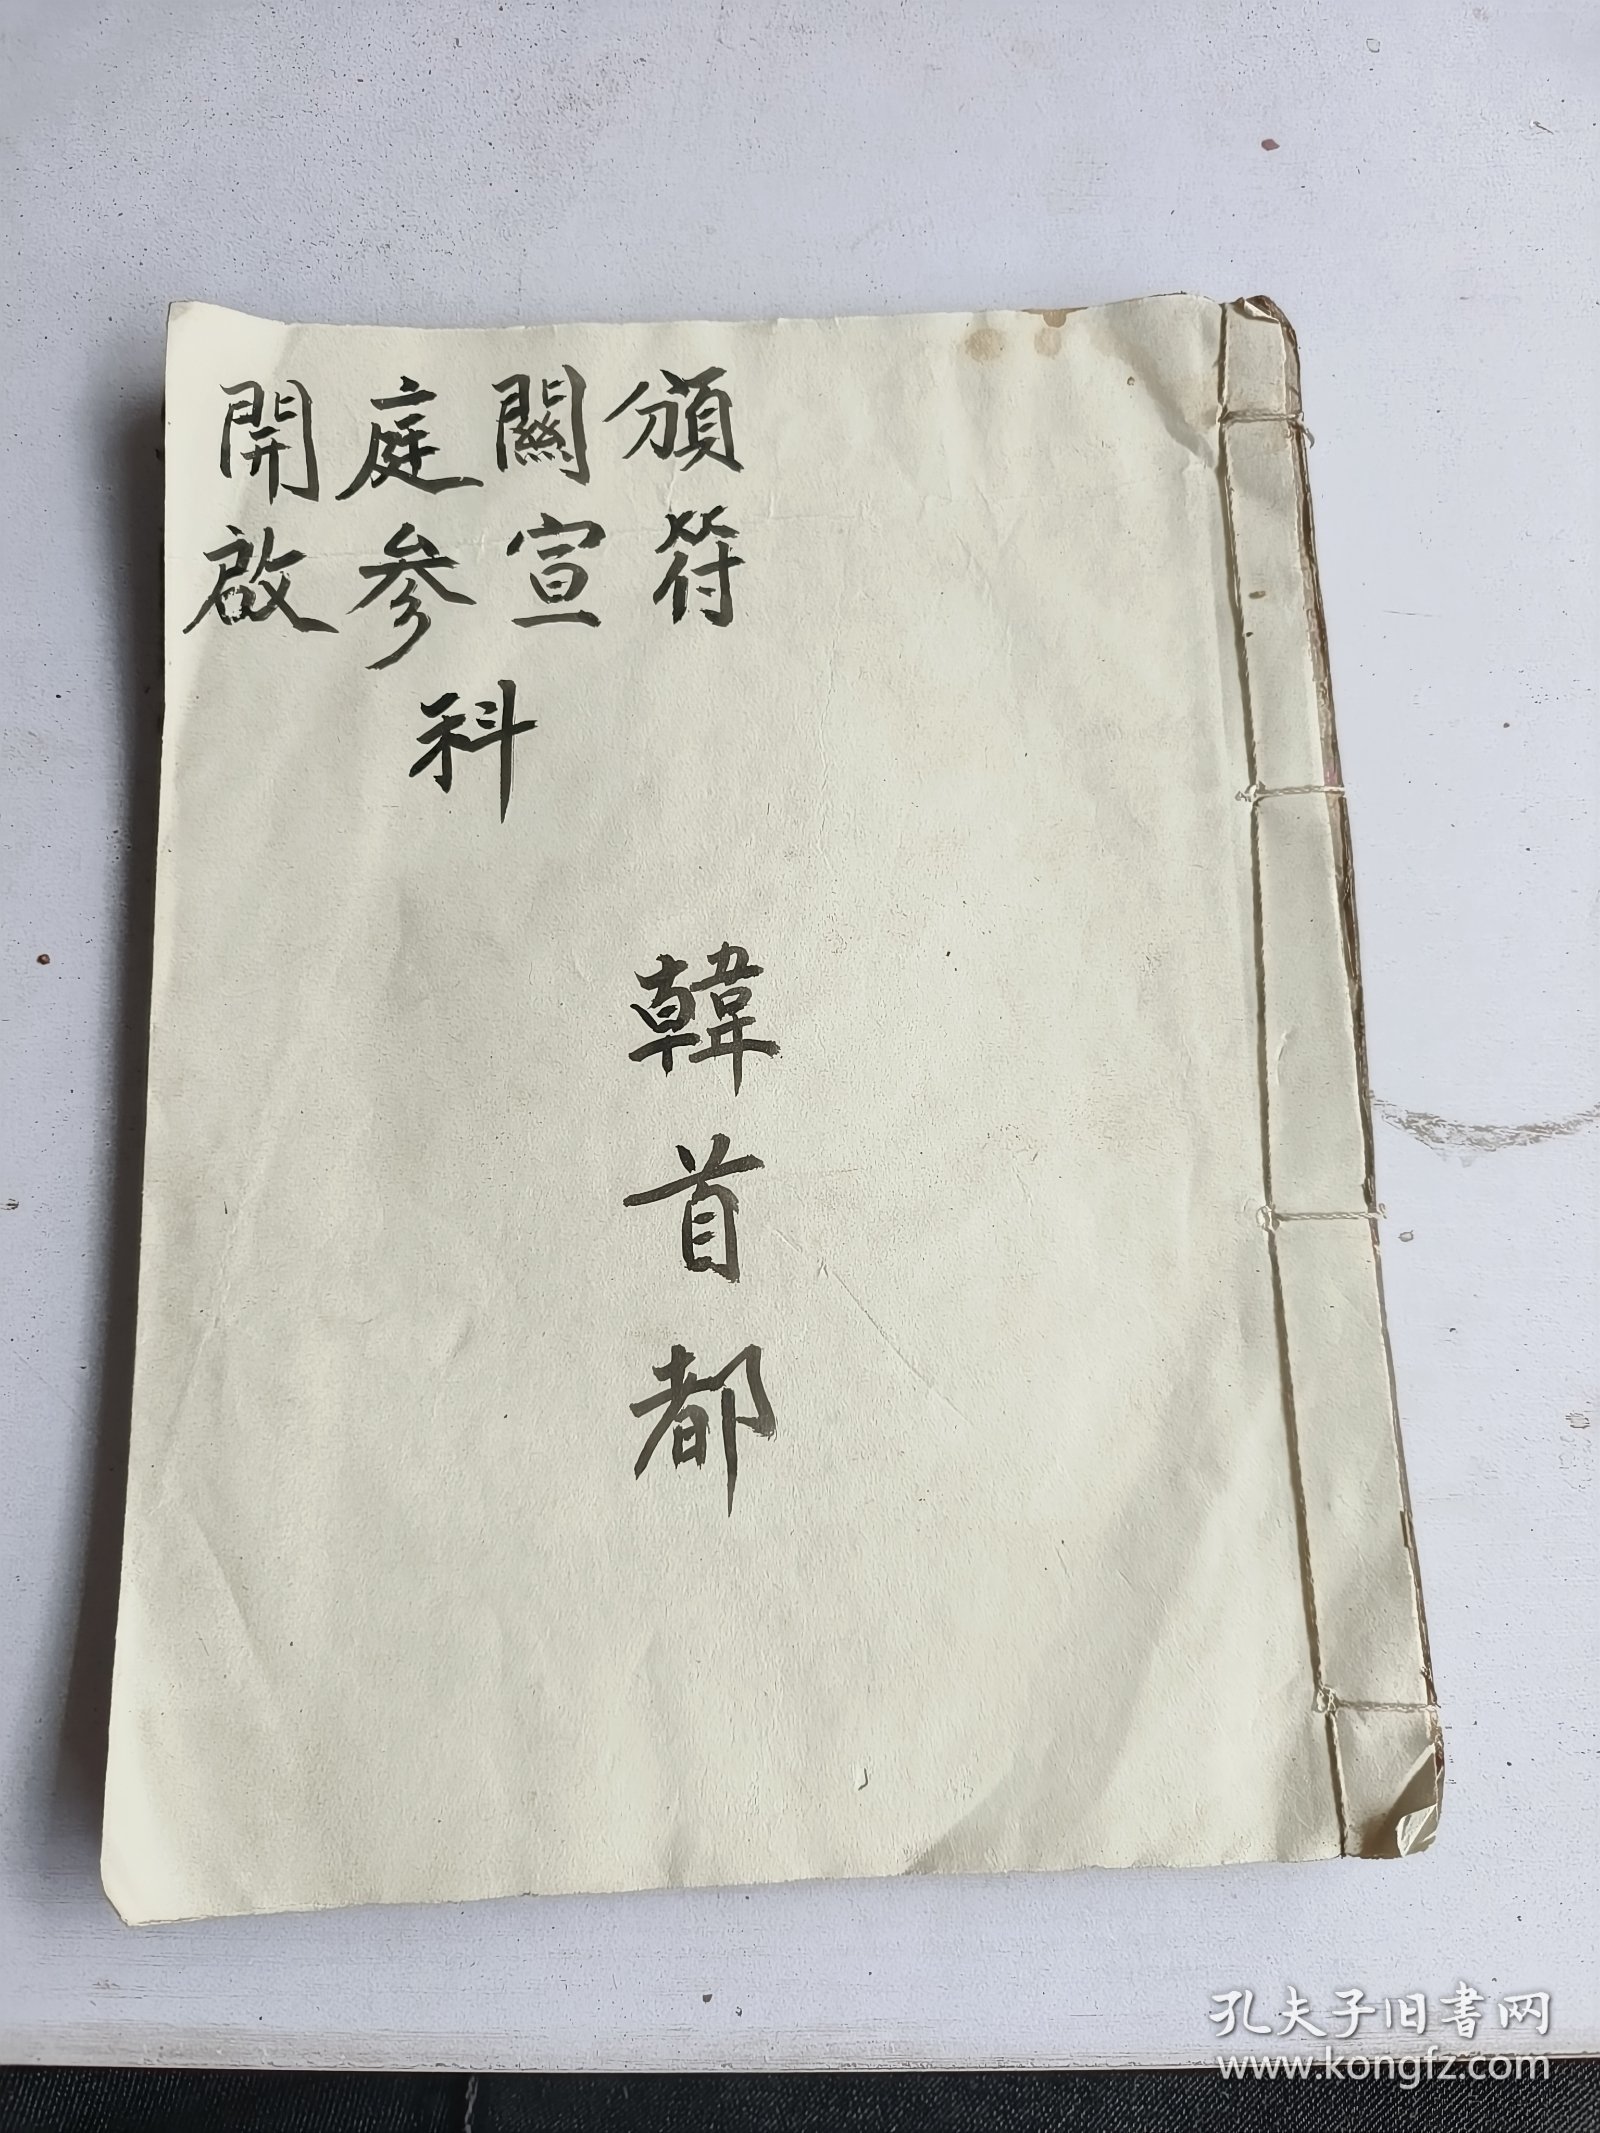 頒符
關宣
庭参
開啟
科
韓首都
孔夫子旧书网
www.kongfz.com